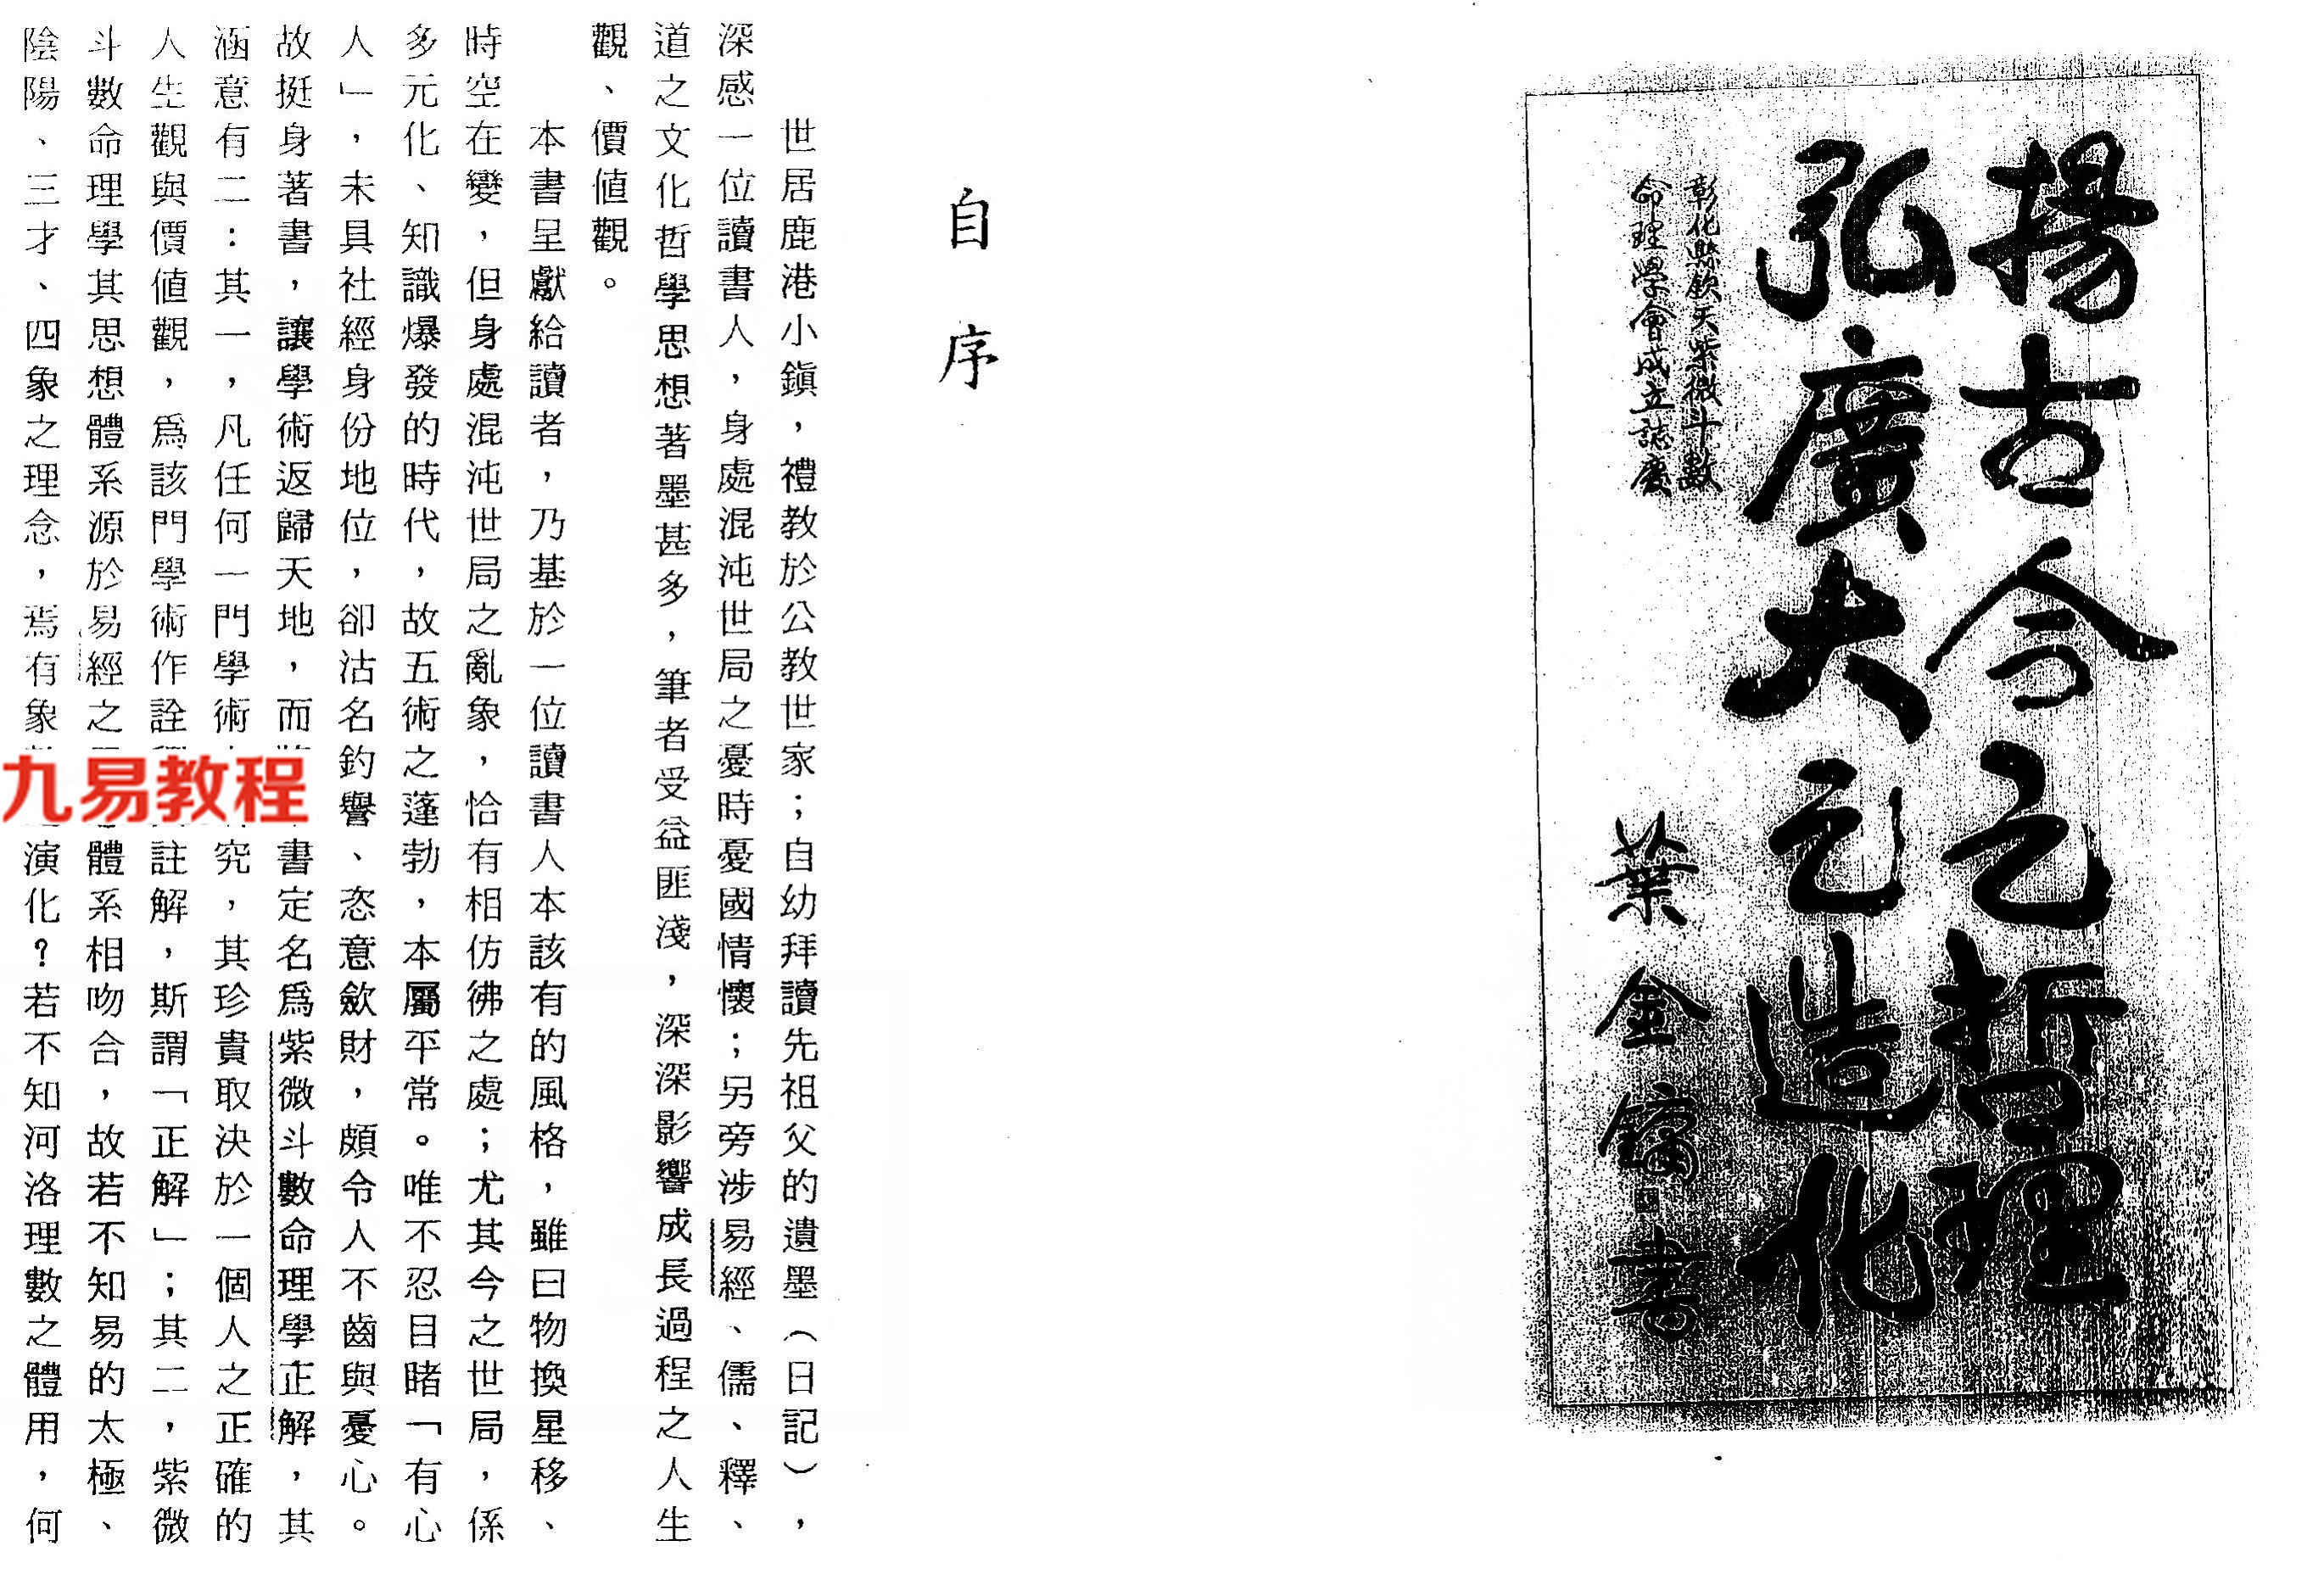 揚古今之哲理
弘廣大之造化
彰化縣欽天紫微斗數
命理學會成立誌慶
葉金鏞書
自序
世居鹿港小鎮，禮教於公教世家；自幼拜讀先祖父的遺墨（日記），
深感一位讀書人，身處混沌世局之憂時憂國情懷；另旁涉易經、儒、釋、
道之文化哲學思想著墨甚多，筆者受益匪淺，深深影響成長過程之人生
觀、價值觀。
本書呈獻給讀者，乃基於一位讀書人本該有的風格，雖曰物換星移、
時空在變，但身處混沌世局之亂象，恰有相仿彿之處；尤其今之世局，係
多元化、知識爆發的時代，故五術之蓬勃，本屬平常。唯不忍目睹「有心
人」，未具社經身份地位，卻沽名釣譽、恣意斂財，頗令人不齒與憂心。
故挺身著書，讓學術返歸天地，而書定名爲紫微斗數命理學正解，其
涵意有二：其一，凡任何一門學術究，其珍貴取決於一個人之正確的
人生觀與價值觀，爲該門學術作詮註解，斯謂「正解」；其二，紫微
斗數命理學其思想體系源於易經之體系相吻合，故若不知易的太極、
陰陽、三才、四象之理念，焉有象演化？若不知河洛理數之體用，何
九易教程